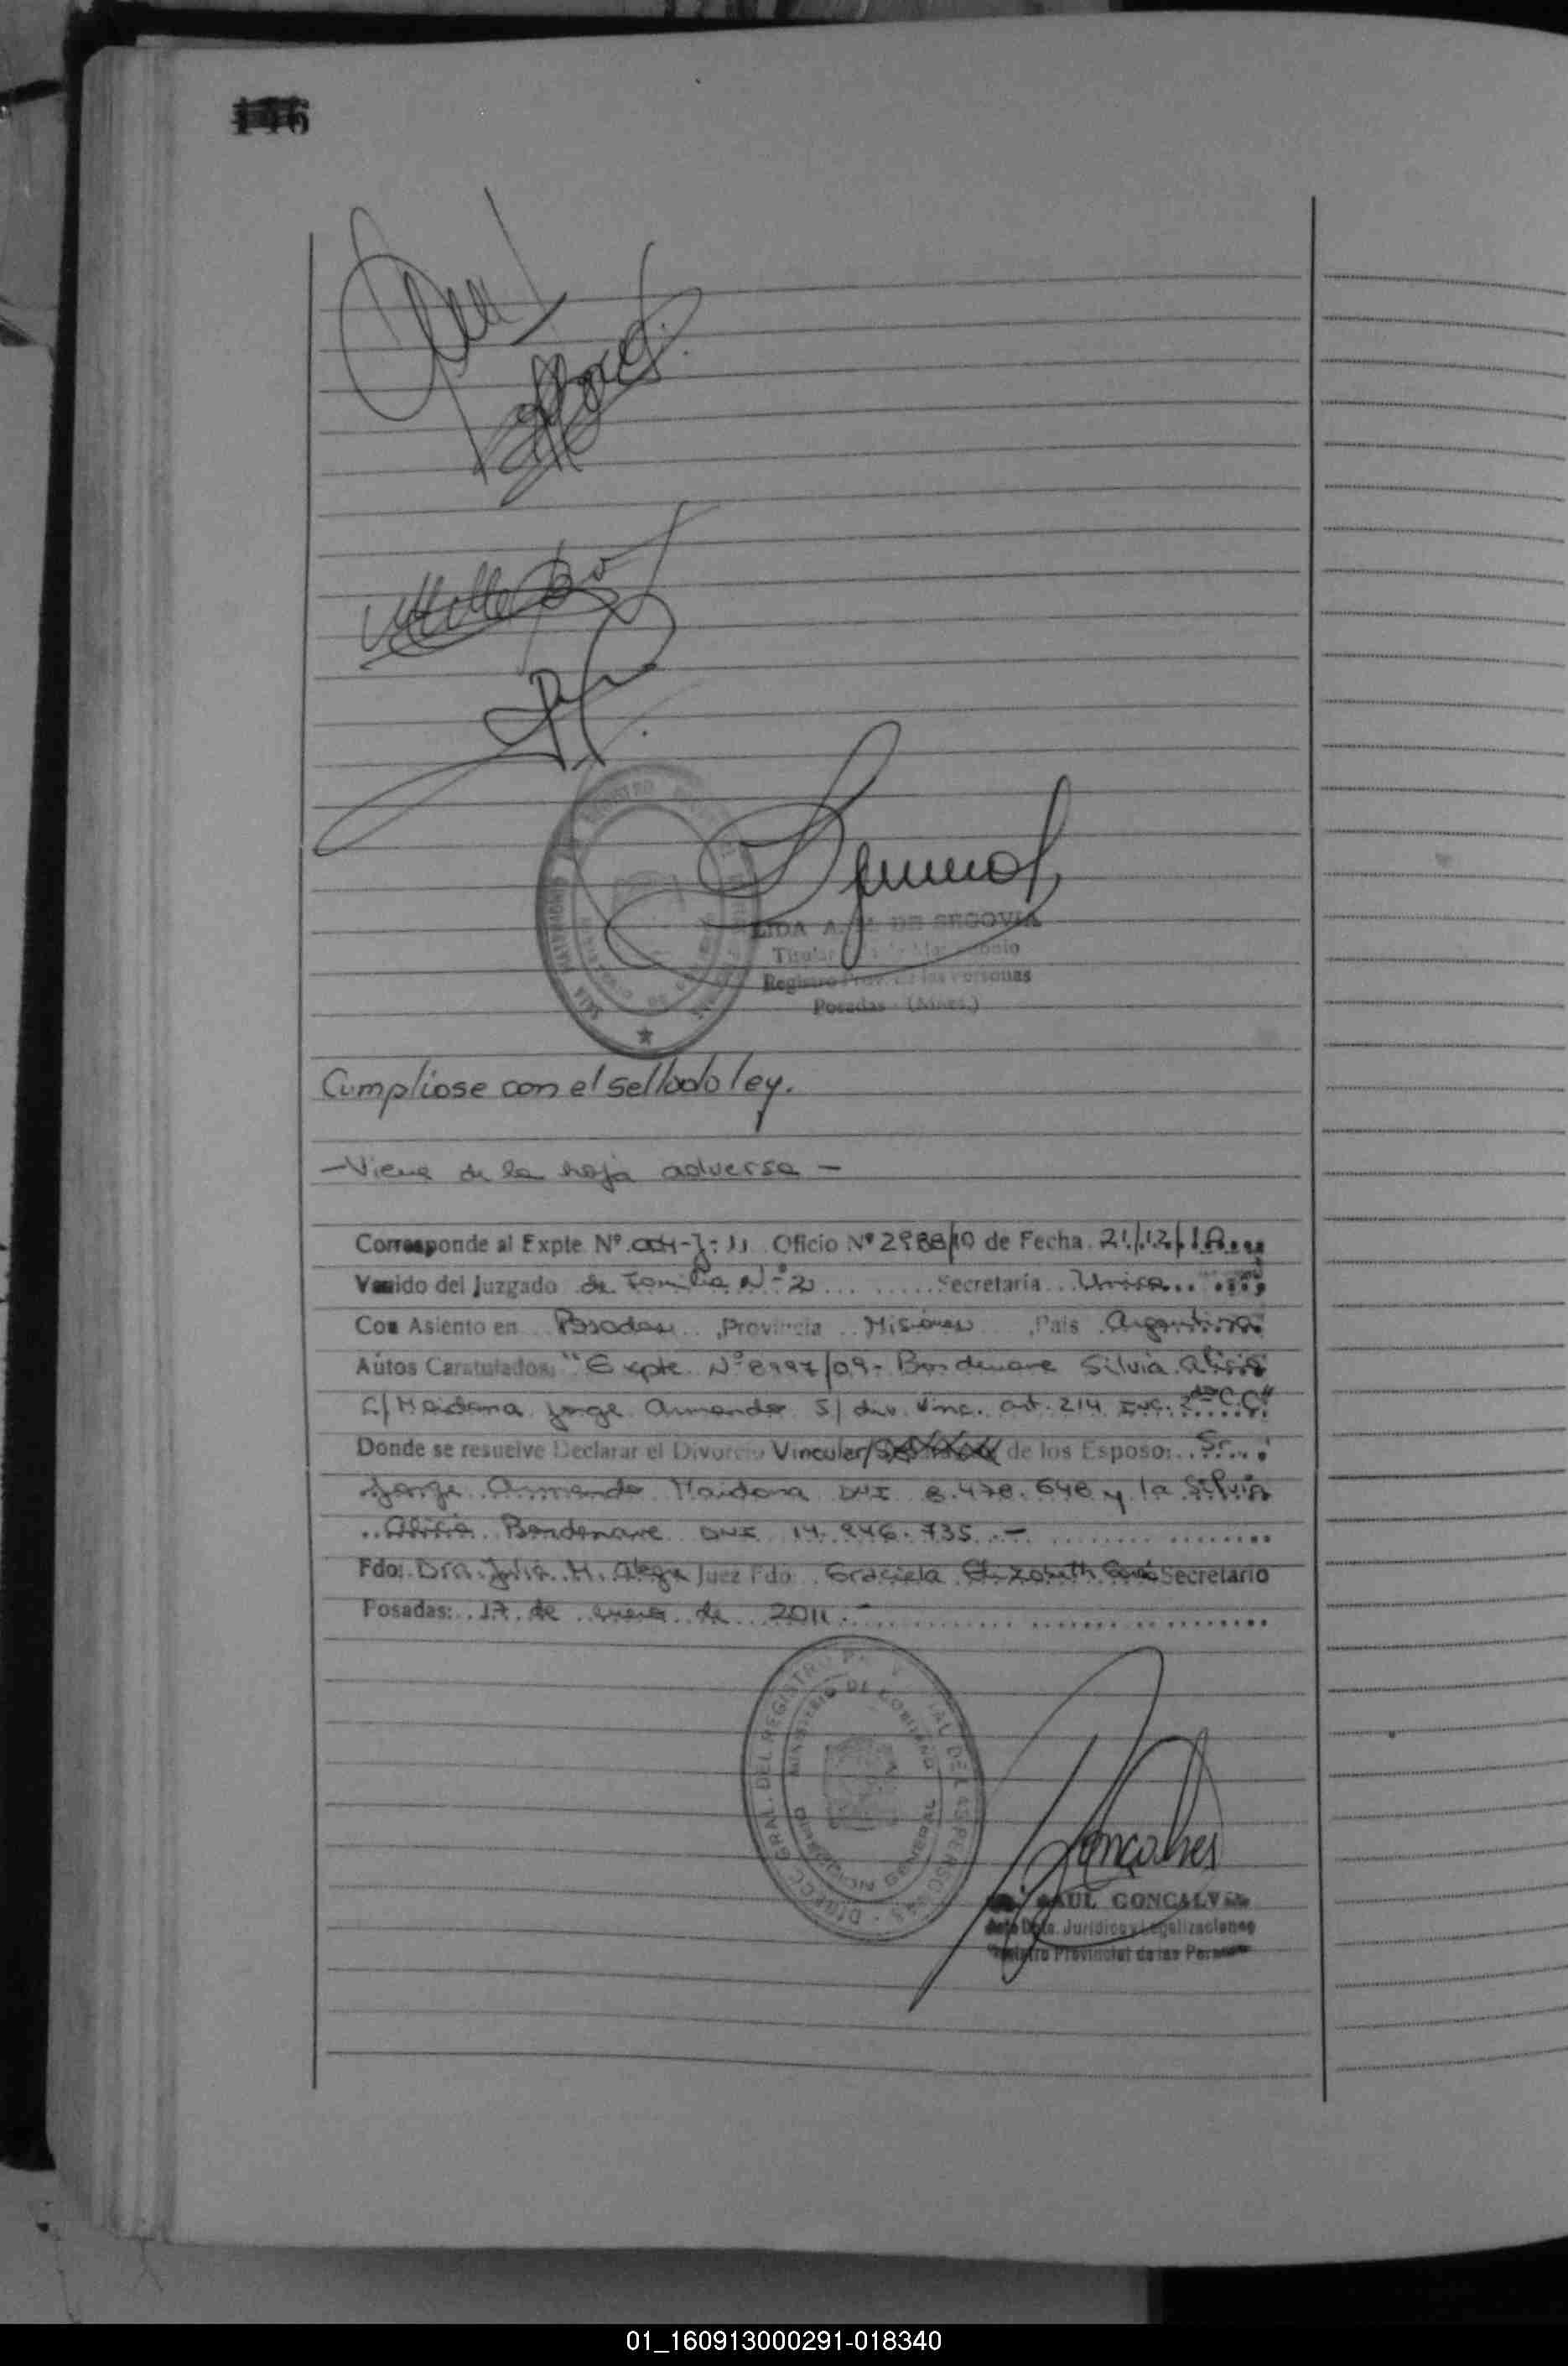 Cumpliose con el sellado ley.
—Viene de la hoja adversa —
Corresponde al Expte. Nº 004-J-11 Oficio Nº 2988/10 de Fecha 21/12/10
Venido del Juzgado de Familia Nº 2 Secretaria Unica
Con Asiento en Posadas, Provincia Misiones, Pais Argentina
Autos Caratulados: "Expte. Nº 8997/09- Bordenave Silvia Alicia
C/ Maidana Jorge Armando S/ div. vinc. art. 214 inc. 2do C.C"
Donde se resuelve Declarar el Divorcio Vincular/ de los Esposo: Sr.
Jorge Armando Maidana DNI 8.478.648 y la Silvia
Alicia Bordenave DNI 14.946.735.-
Fdo: Dra. Julia H. Alega Juez Fdo: Graciela Elizabeth Secretario
Posadas: 17 de enero de 2011.-
DE SEGOVIA
Titular
Registro Prov. de las Personas
Posadas - (Mnes.)
REGISTRO
MATRIMONIO
DIRECC. GRAL. DEL REGISTRO PROVINCIAL DE LAS PERSONAS
MINISTERIO DE GOBIERNO
Goncalves
RAUL GONCALVES
Dpto. Jurídico y Legalizaciones
Registro Provincial de las Personas
01_160913000291-018340